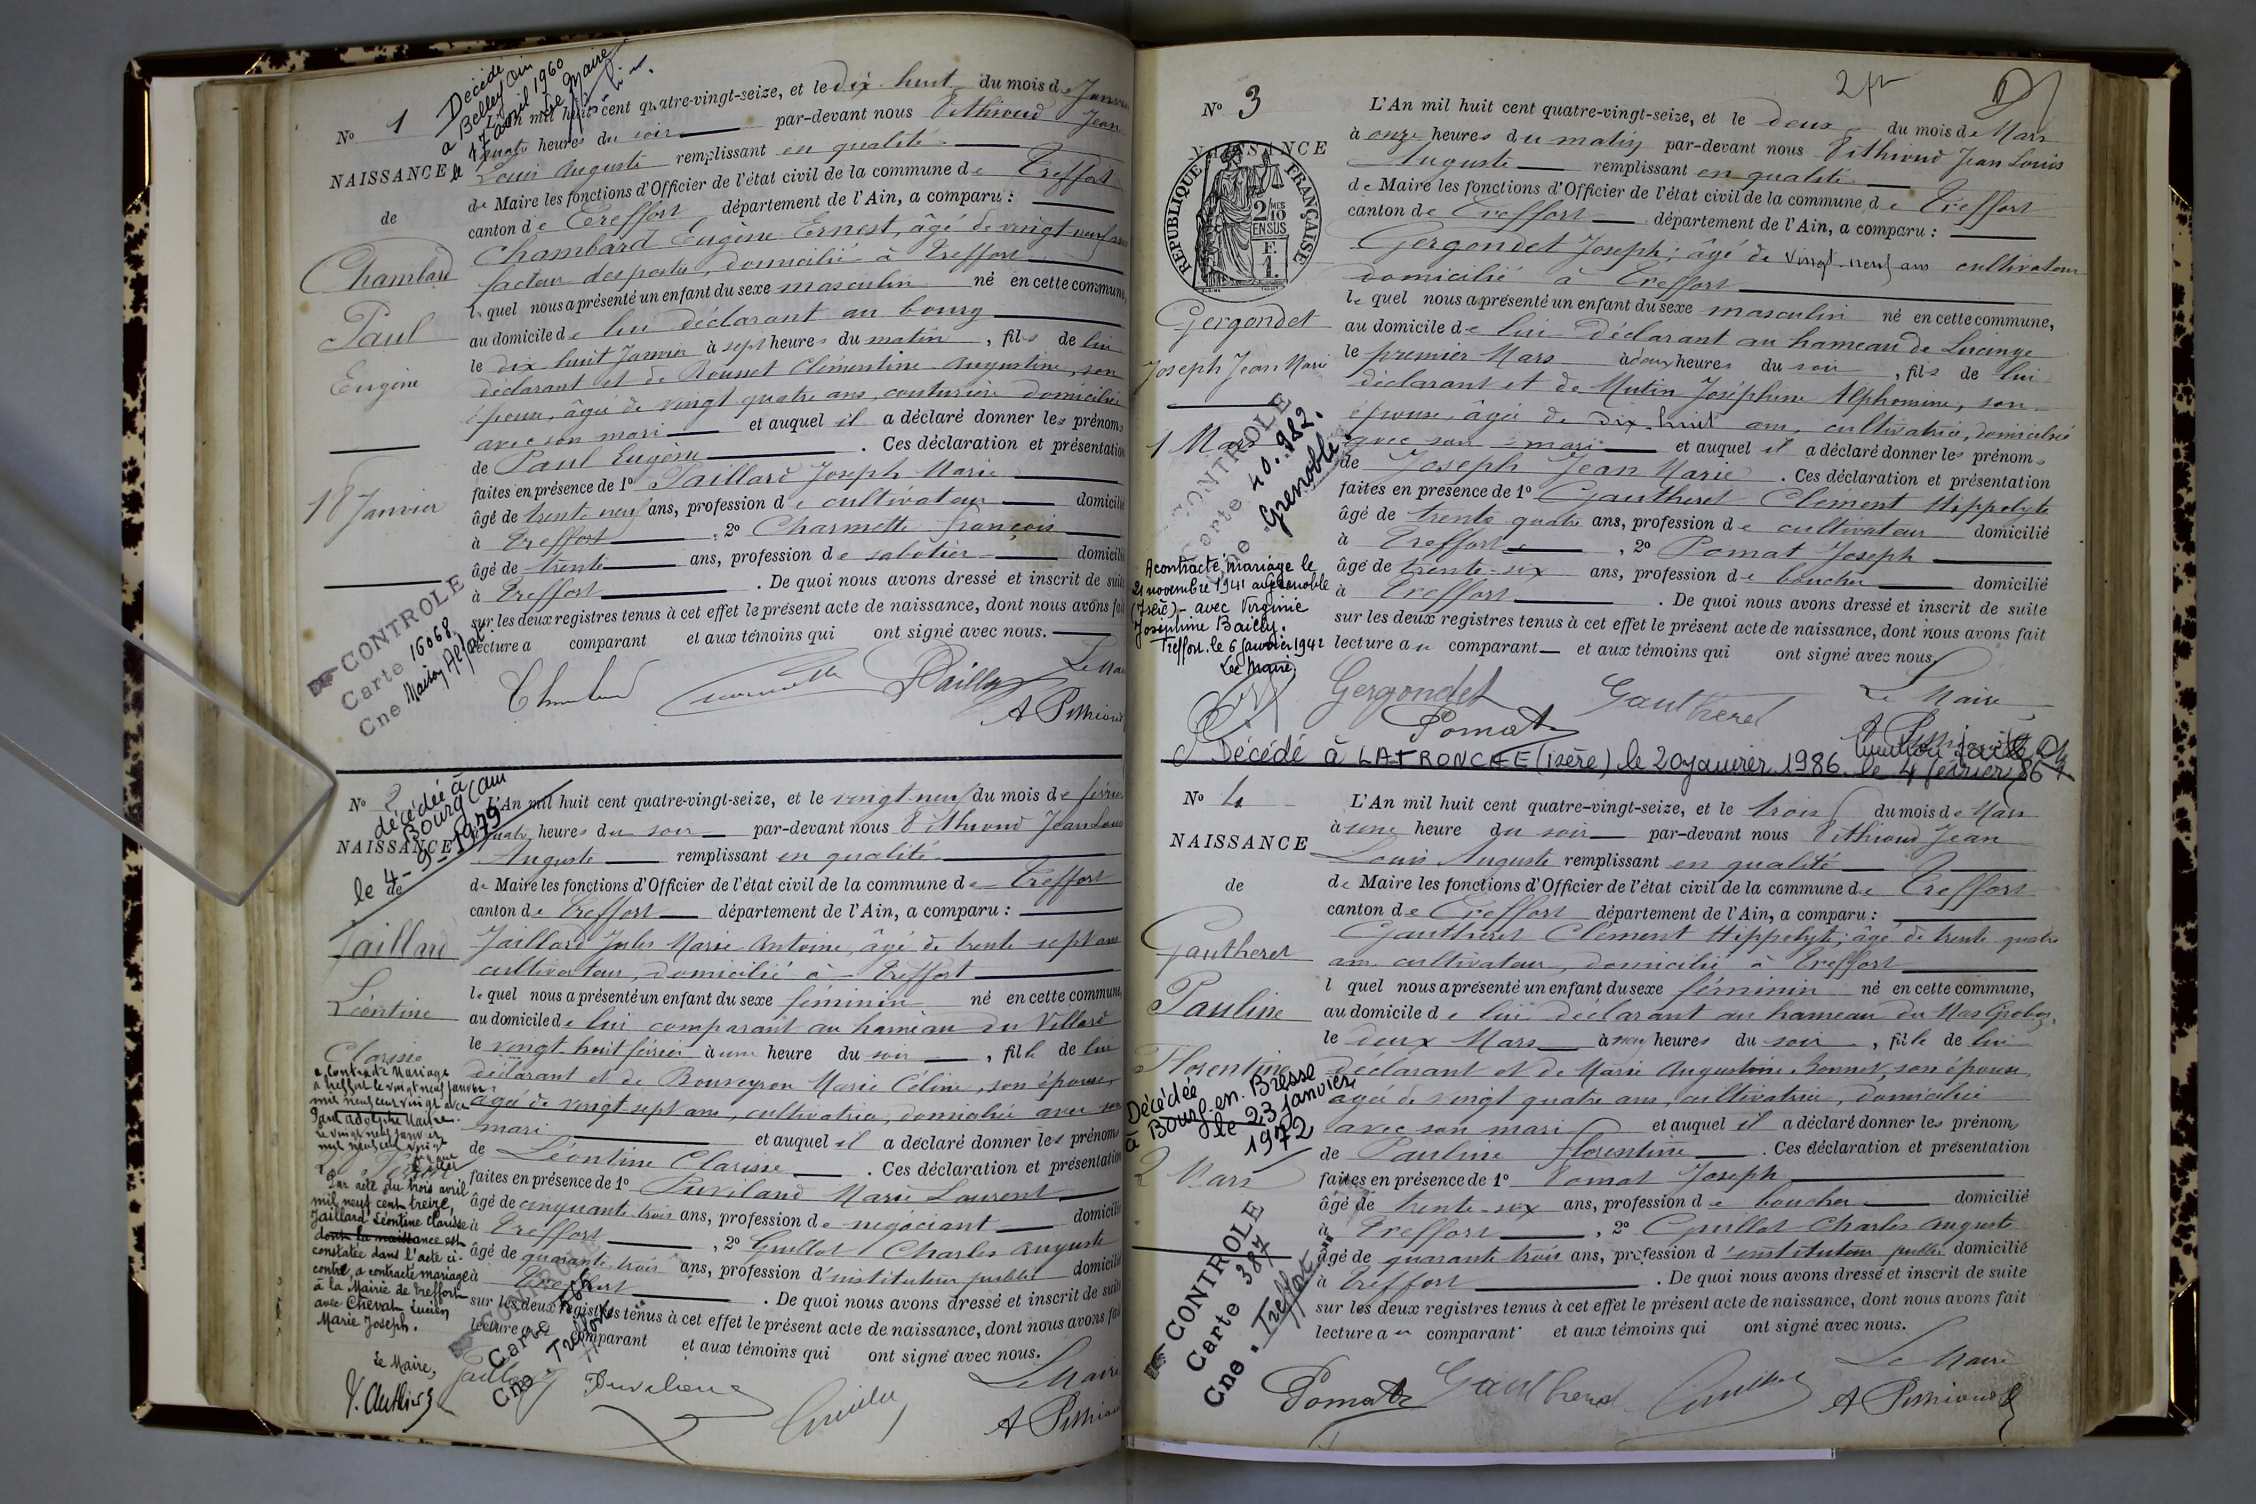 Décédé
à Belley Ain
le 17 avril 1960
Le Maire
No 1
NAISSANCE
de
Chambard
Paul
Eugène
18 Janvier
L'An mil huit cent quatre-vingt-seize, et le dix huit du mois de Janvier
à quatre heures du soir par-devant nous Pithioud Jean
Louis Auguste remplissant en qualité
de Maire les fonctions d'Officier de l'état civil de la commune de Treffort
canton de Treffort département de l'Ain, a comparu :
Chambard Eugène Ernest, âgé de vingt neuf ans
facteur des postes, domicilié à Treffort
lequel nous a présenté un enfant du sexe masculin né en cette commune,
au domicile de lui déclarant au bourg
le dix huit Janvier à sept heures du matin, fils de lui
déclarant et de Rousset Clémentine Augustine, son
épouse, âgée de vingt quatre ans, couturière domiciliée
avec son mari et auquel il a déclaré donner les prénoms
de Paul Eugène. Ces déclaration et présentation
faites en présence de 1o Paillard Joseph Marie
âgé de trente neuf ans, profession de cultivateur domicilié
à Treffort, 2o Charmette françois
âgé de trente ans, profession de sabotier domicilié
à Treffort. De quoi nous avons dressé et inscrit de suite
sur les deux registres tenus à cet effet le présent acte de naissance, dont nous avons fait
lecture a comparant et aux témoins qui ont signé avec nous.
CONTROLE
Carte 16068
Cne Maison Alfort
Le Maire
A Pithioud
No 2
décédée à
Bourg (Ain
le 4-9-1979
NAISSANCE
de
Jaillard
Léontine
Clarisse
L'An mil huit cent quatre-vingt-seize, et le vingt neuf du mois de février
à quatre heures du soir par-devant nous Pithioud Jean Louis
Auguste remplissant en qualité
de Maire les fonctions d'Officier de l'état civil de la commune de Treffort
canton de Treffort département de l'Ain, a comparu :
Jaillard Jules Marie Antoine, âgé de trente sept ans
cultivateur, domicilié à Treffort
lequel nous a présenté un enfant du sexe féminin né en cette commune,
au domicile de lui comparant au hameau du Villard
le vingt huit février à une heure du soir, fille de lui
déclarant et de Bouveyron Marie Céline, son épouse,
agée de vingt sept ans, cultivatrice, domiciliée avec son
mari et auquel il a déclaré donner les prénoms
de Léontine Clarisse. Ces déclaration et présentation
faites en présence de 1o Puvilland Marie Laurent
âgé de cinquante trois ans, profession de négociant domicilié
à Treffort, 2o Guillot Charles Auguste
âgé de quarante trois ans, profession d'instituteur public domicilié
à Treffort. De quoi nous avons dressé et inscrit de suite
sur les deux registres tenus à cet effet le présent acte de naissance, dont nous avons fait
lecture au comparant et aux témoins qui ont signé avec nous.
a contracté mariage
à Treffort le vingt neuf janvier
mil neuf cent vingt avec
Paul Adolphe
le vingt neuf janvier
mil neuf cent vingt
Par acte du trois avril
mil neuf cent treize,
Jaillard Léontine Clarisse
dont la naissance est
constatée dans l'acte ci-
contre, a contracté mariage
à la Mairie de Treffort
avec Chevat Lucien
Marie Joseph.
Le Maire,
CONTROLE
Carte
Cne Treffort
Jaillard
Le Maire
A Pithioud
2
No 3
NAISSANCE
REPUBLIQUE FRANÇAISE
2 MES
10
EN SUS
F.
1.
Gergondet
Joseph Jean Marie
1 Mars
L'An mil huit cent quatre-vingt-seize, et le deux du mois de Mars
à onze heures du matin par-devant nous Pithioud Jean Louis
Auguste remplissant en qualité
de Maire les fonctions d'Officier de l'état civil de la commune de Treffort
canton de Treffort département de l'Ain, a comparu :
Gergondet Joseph, âgé de vingt-neuf ans cultivateur
domicilié à Treffort
lequel nous a présenté un enfant du sexe masculin né en cette commune,
au domicile de lui déclarant au hameau de Lucinge
le premier Mars à deux heures du soir, fils de lui
déclarant et de Mutin Joséphine Alphonsine, son
épouse, âgée de dix-huit ans, cultivatrice, domiciliée
avec son mari et auquel il a déclaré donner les prénoms
de Joseph Jean Marie. Ces déclaration et présentation
faites en présence de 1o Gautheret Clément Hippolyte
âgé de trente quatre ans, profession de cultivateur domicilié
à Treffort, 2o Pomat Joseph
âgé de trente-six ans, profession de boucher domicilié
à Treffort. De quoi nous avons dressé et inscrit de suite
sur les deux registres tenus à cet effet le présent acte de naissance, dont nous avons fait
lecture au comparant et aux témoins qui ont signé avec nous.
CONTROLE
Carte 40.982.
Cne Grenoble
A contracté mariage le
21 novembre 1941 à Grenoble
(Isère) - avec Virginie
Joséphine Bailly.
Treffort, le 6 Janvier 1942
Le Maire,
Gergondet
Gautheret
Le Maire
Pomat
Décédé à LA TRONCHE (Isère) le 20 janvier 1986. le 4 février 86
No 4
NAISSANCE
de
Gautheret
Pauline
Florentine
2 Mars
L'An mil huit cent quatre-vingt-seize, et le trois du mois de Mars
à une heure du soir par-devant nous Pithioud Jean
Louis Auguste remplissant en qualité
de Maire les fonctions d'Officier de l'état civil de la commune de Treffort
canton de Treffort département de l'Ain, a comparu :
Gautheret Clément Hippolyte, âgé de trente quatre
ans cultivateur, domicilié à Treffort
lequel nous a présenté un enfant du sexe féminin né en cette commune,
au domicile de lui déclarant au hameau du Mas
le deux Mars à heures du soir, fille de lui
déclarant et de Marie Augustine Bonnet, son épouse
agée de vingt quatre ans, cultivatrice, domiciliée
avec son mari et auquel il a déclaré donner les prénoms
de Pauline florentine. Ces déclaration et présentation
faites en présence de 1o Pomat Joseph
âgé de trente-six ans, profession de boucher domicilié
à Treffort, 2o Guillot Charles Auguste
âgé de quarante trois ans, profession d'instituteur public domicilié
à Treffort. De quoi nous avons dressé et inscrit de suite
sur les deux registres tenus à cet effet le présent acte de naissance, dont nous avons fait
lecture au comparant et aux témoins qui ont signé avec nous.
Décédée
à Bourg-en-Bresse
le 23 janvier
1972
CONTROLE
Carte 387
Cne "Treffort"
Pomat
Gautheret
Le Maire
A Pithioud